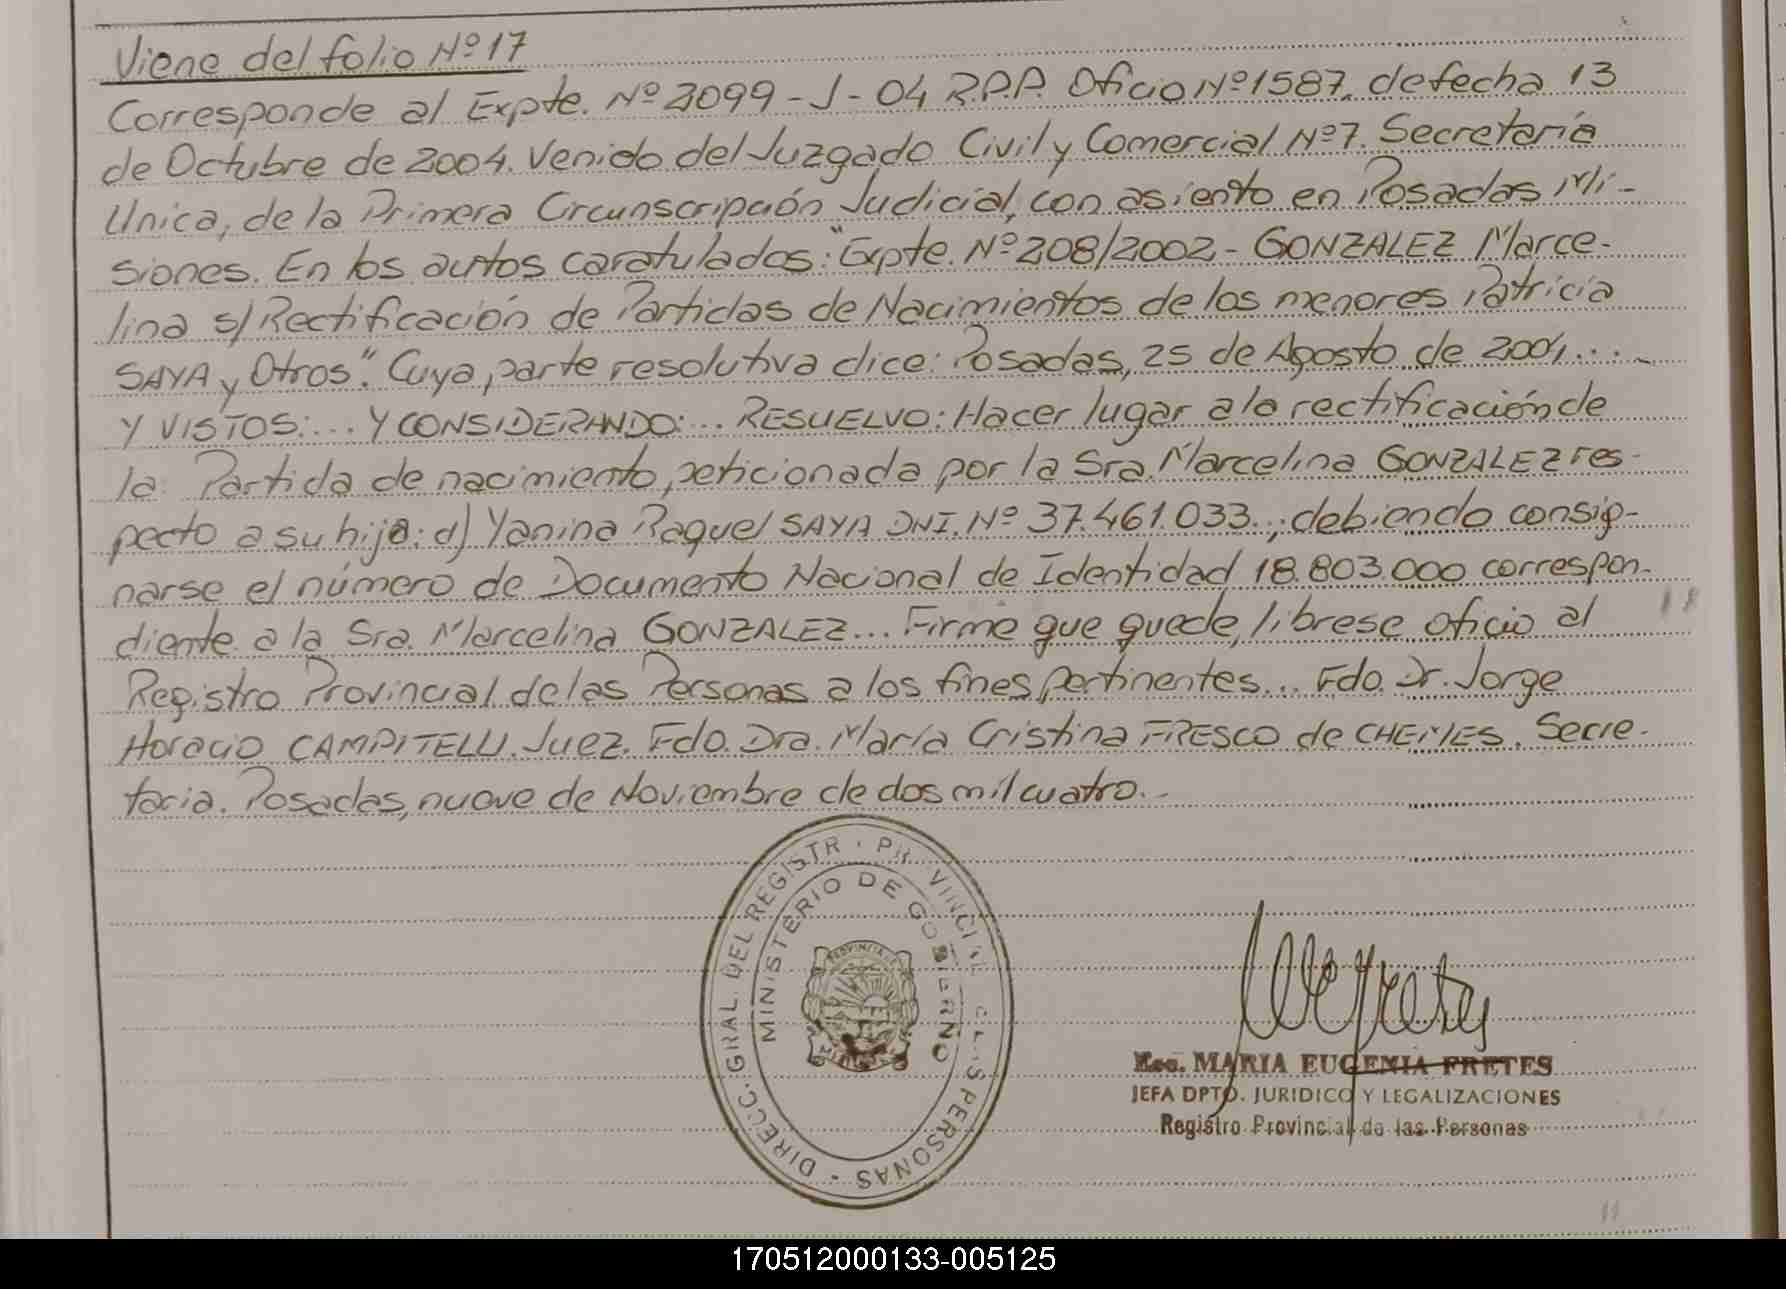 Viene del folio Nº 17
Corresponde al Expte. Nº 3099 - J - 04 R.P.P. Oficio Nº 1587, de fecha 13
de Octubre de 2004. Venido del Juzgado Civil y Comercial Nº 7. Secretaría
Unica, de la Primera Circunscripción Judicial, con asiento en Posadas Mi-
siones. En los autos caratulados: "Expte. Nº 208/2002 - GONZALEZ Marce-
lina s/ Rectificación de Partidas de Nacimientos de los menores Patricia
SAYA y Otros". Cuya parte resolutiva dice: Posadas, 25 de Agosto de 2004...
Y VISTOS:... Y CONSIDERANDO:... RESUELVO: Hacer lugar a la rectificación de
la Partida de nacimiento, peticionada por la Sra. Marcelina GONZALEZ res-
pecto a su hija: d) Yanina Raquel SAYA DNI. Nº 37.461.033..., debiendo consig-
narse el número de Documento Nacional de Identidad 18.803.000 correspon-
diente a la Sra. Marcelina GONZALEZ... Firme que quede, líbrese oficio al
Registro Provincial de las Personas a los fines pertinentes... Fdo. Dr. Jorge
Horacio CAMPITELLI. Juez. Fdo. Dra. María Cristina FRESCO de CHEMES. Secre-
taria. Posadas, nueve de Noviembre de dos mil cuatro.-
DIRECC. GRAL. DEL REGISTR PR VINCIAL PERSONAS
MINISTERIO DE GOBIERNO
PROVINCIA DE
MISIONES
Esc. MARIA EUGENIA FRETES
JEFA DPTO. JURIDICO Y LEGALIZACIONES
Registro Provincial de las Personas
170512000133-005125